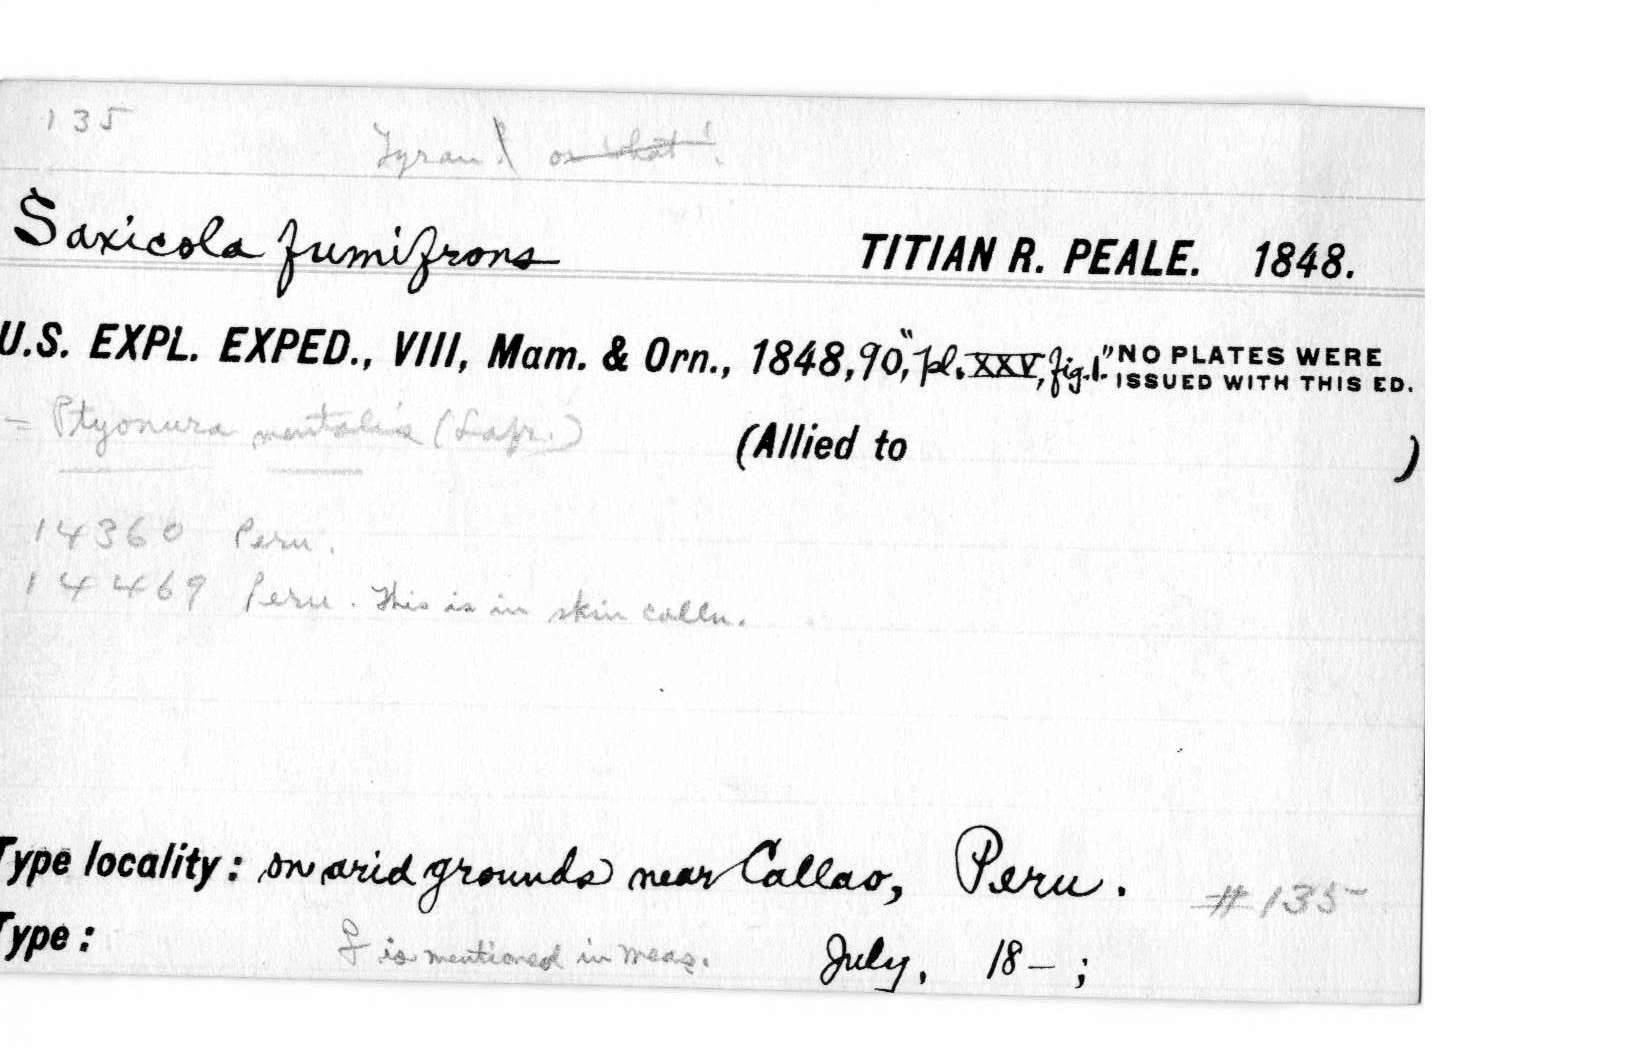 135
Tyran! or what!
Saxicola fumifrons TITIAN R. PEALE. 1848.
U.S. EXPL. EXPED., VIII, Mam. & Orn., 1848, 90, "pl. XXV, fig. 1." NO PLATES WERE
ISSUED WITH THIS ED.
= Ptyonura mentalis (Lafr.) (Allied to )
14360 Peru.
14469 Peru. This is in skin colln.
Type locality: on arid grounds near Callao, Peru. #135
Type: is mentioned in meas. July, 18– ;